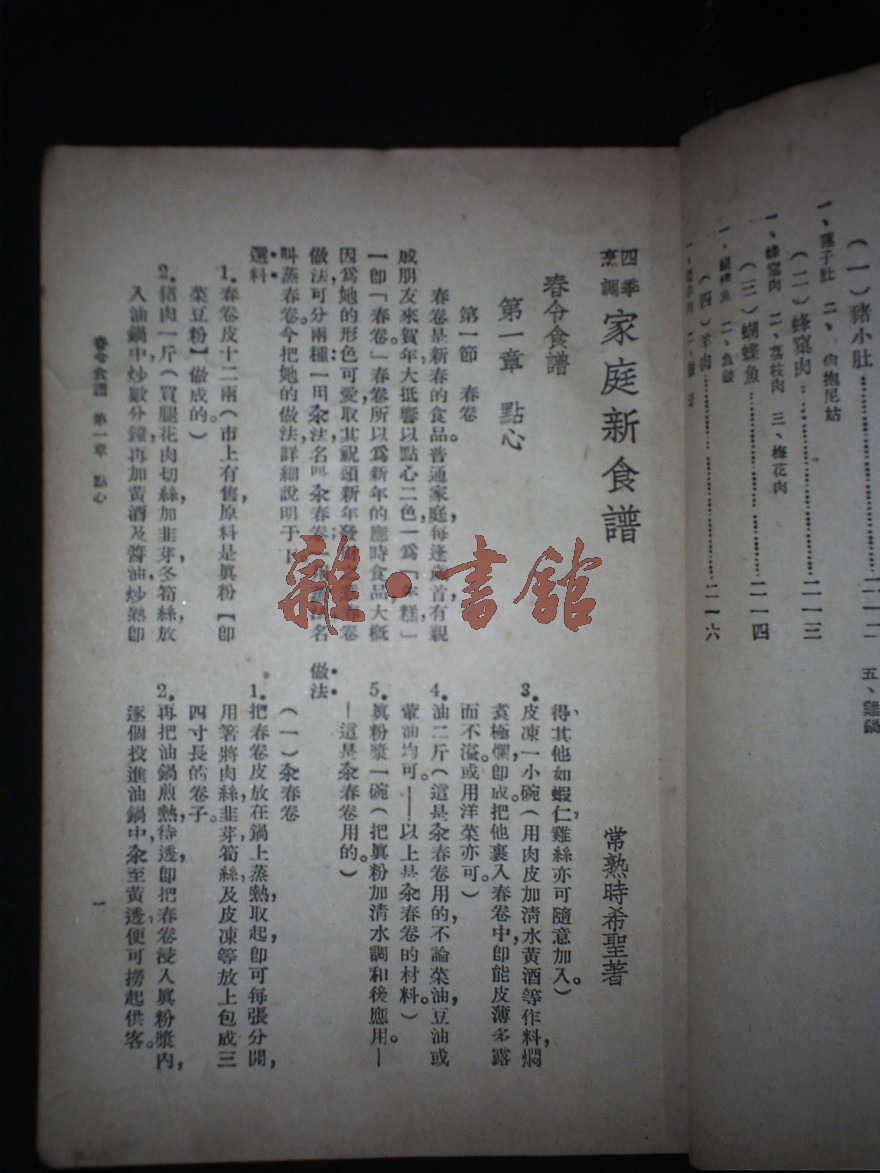 (一)豬小肚……二一一
一、蓮子肚 二、
(二)蜂窠肉……二一三
一、蜂窠肉 二、荔枝肉 三、梅花肉
(三)蝴蝶魚……二一四
(四)羊肉……二一六
五、雞鍋
四季烹調 家庭新食譜
常熟時希聖著
春令食譜
第一章 點心
第一節 春卷
春卷是新春的食品。普通家庭,每逢歲首,有親
戚朋友來賀年,大抵饗以點心二色,一爲「年糕」
一卽「春卷」。春卷所以爲新年的應時食品,大概
因爲她的形色可愛,取其祝頌新年發
做法可分兩種,一用汆法,名叫汆春卷,一
叫蒸春卷。今把她的做法,詳細說明于下
選料
1.春卷皮十二兩(市上有售,原料是眞粉【卽
菜豆粉】做成的。)
2.豬肉一斤(買腿花肉切絲,加韭芽冬筍絲,放
入油鍋中,炒數分鐘,再加黃酒及醬油,炒熟卽
得。其他如蝦仁,雞絲,亦可隨意加入。)
3.皮凍一小碗(用肉皮加清水黃酒等作料,燜
煑極爛卽成。把他裹入春卷中,卽能皮薄多露
而不溢。或用洋菜亦可。)
4.油二斤(這是汆春卷用的,不論菜油,豆油或
葷油均可。——以上是汆春卷的材料。)
5.眞粉漿一碗(把眞粉加清水調和後應用。—
—這是汆春卷用的。)
做法
(一)汆春卷
1.把春卷皮放在鍋上蒸熱,取起,卽可每張分開,
用箸將肉絲,韭芽,筍絲,及皮凍等放上,包成三
四寸長的卷子。
2.再把油鍋煎熱,待透,卽把春卷浸入眞粉漿內,
逐個投進油鍋中,汆至黃透,便可撈起供客。
春令食譜 第一章 點心
一
雜·書舘